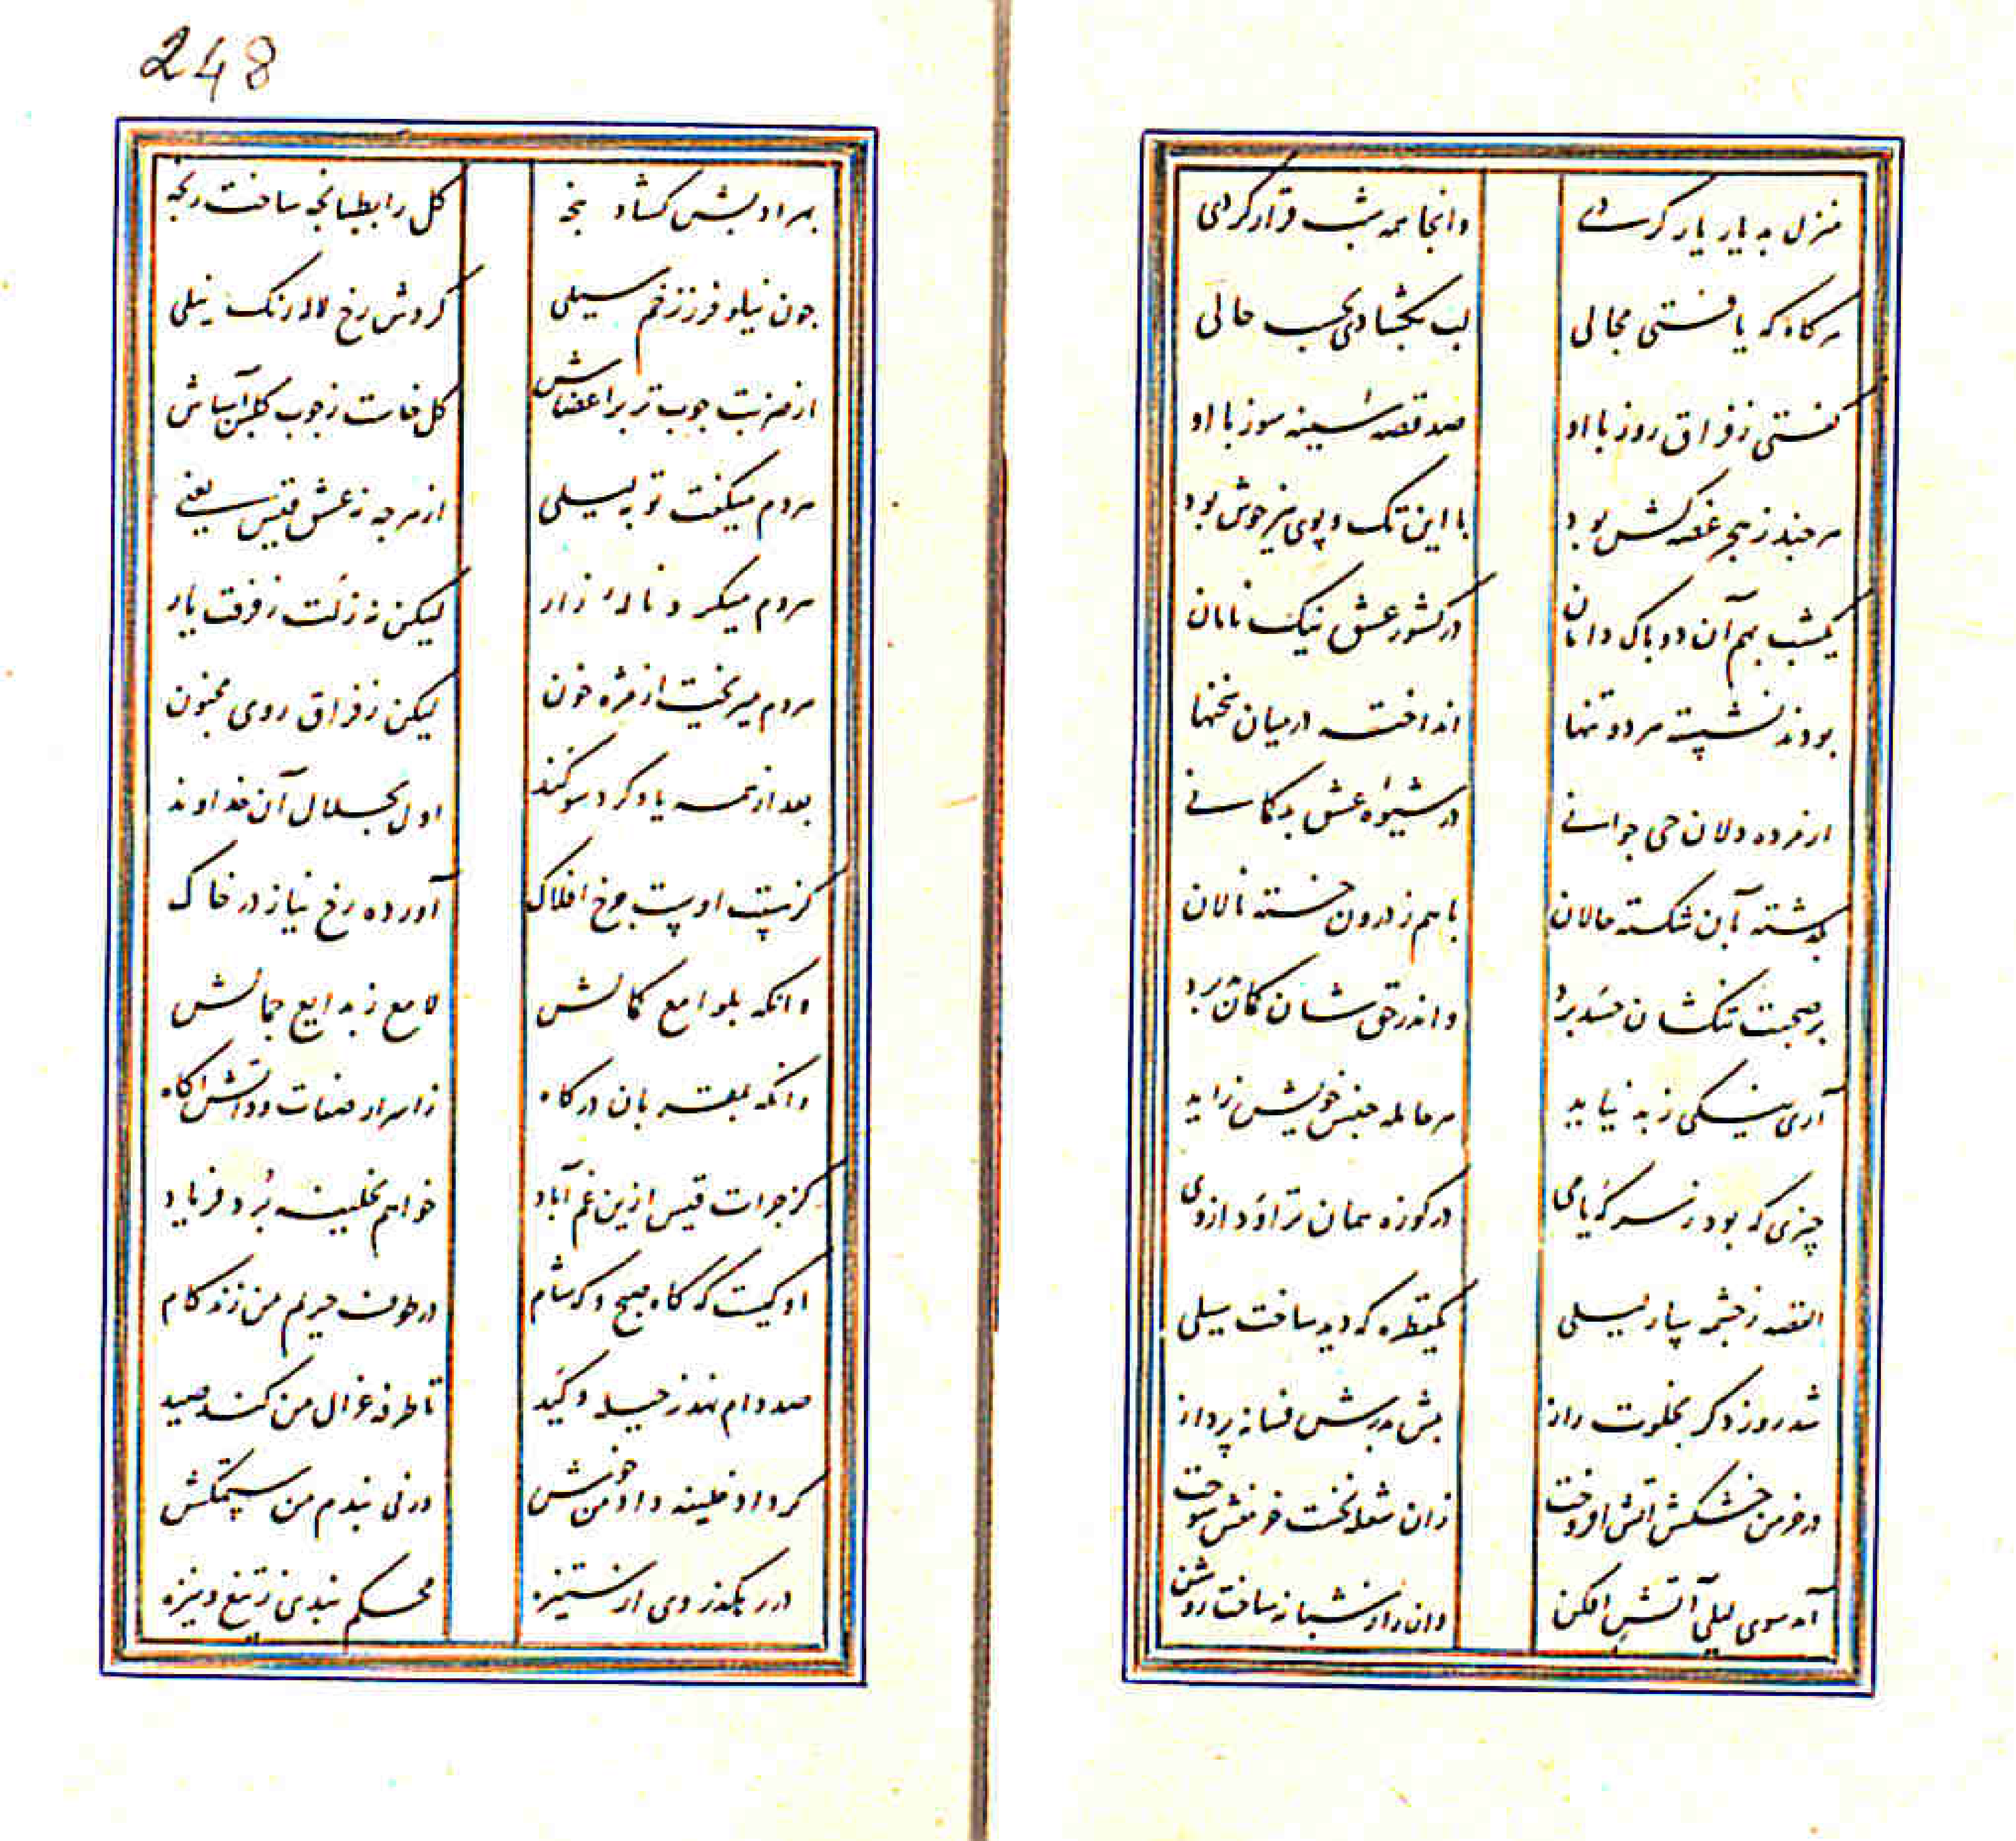 248
منزل به دیار یار کردی    وانجا همه شب قرار کردی
هرگاه که یافتی مجالی    لب بگشادی بحسب حالی
گفتی ز فراق روز با او    صد قصه سینه سوز با او
هر چند ز هجر غصه کش بود    با این تک و پوی نیز خوش بود
یکشب بهم آن دو پاک دامان    در کشور عشق نیک نامان
بودند نشسته هر دو تنها    انداخته در میان سخنها
از مرده دلان حی جوانی    در شیوه عشق بدگمانی
بگذشته بآن شکسته حالان    با هم ز درون خسته نالان
بر صحبت تنگشان حسد برد    واندر حق شان گمان بد برد
آری نیکی ز بد نیاید    هر حامله جنس خویش زاید
چیزی که بود ز سرکه یا می    در کوزه همان تراود از وی
القصه ز چشمه سار لیلی    یکقطره که دید ساخت سیلی
شد روز دگر بخلوت راز    پیش پدرش فسانه پرداز
در خرمن خشکش آتش افروخت    زان شعله نخست خرمنش سوخت
آمد سوی لیلی آتش افکن    وان راز شبانه ساخت روشن
بهر ادبش گشاد پنجه    گل را بطپانچه ساخت رنجه
چون نیلوفر ز زخم سیلی    کردش رخ لاله رنگ نیلی
از ضربت چوب تر بر اعضاش    گل خاست ز چوب گلبن آساش
هر دم میگفت توبه لیلی    از هر چه ز عشق قیس یعنی
هر دم میکرد ناله زار    لیکن نه ز لت ز فرقت یار
هر دم میریخت از مژه خون    لیکن ز فراق روی مجنون
بعد از همه یاد کرد سوگند    اول بجلال آن خداوند
کز پستی او پست چرخ افلاک    آورده رخ نیاز در خاک
وانگه بلوامع کمالش    لامع ز بدایع جمالش
وانگه بمقربان درگاه    ز اسرار صفات و ذاتش آگاه
کز جرات قیس ازین غم آباد    خواهم بخلیفه برد فریاد
او کیست که گاه صبح و گه شام    در طوف حریم من زند گام
صد دام نهد ز حیله و کید    تا طرفه غزال من کند صید
گر داد خلیفه داد من خوش    ورنی بندم من ستمکش
در رهگذر وی از ستیزه    محکم بندی ز تیغ و نیزه